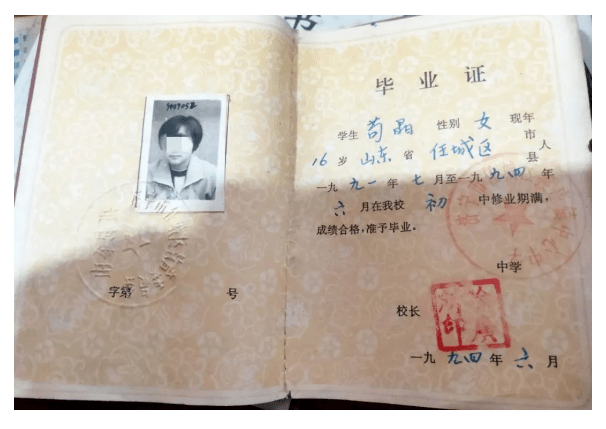 书
毕业证
学生 苟晶 性别 女 现年
16 岁 山东 省 任城区 市县 人
一九 九一 年 七 月至一九 九四 年
六 月在我校 初 中修业期满，
成绩合格，准予毕业．
中学
校长
一九 九四 年 六 月
字第 号